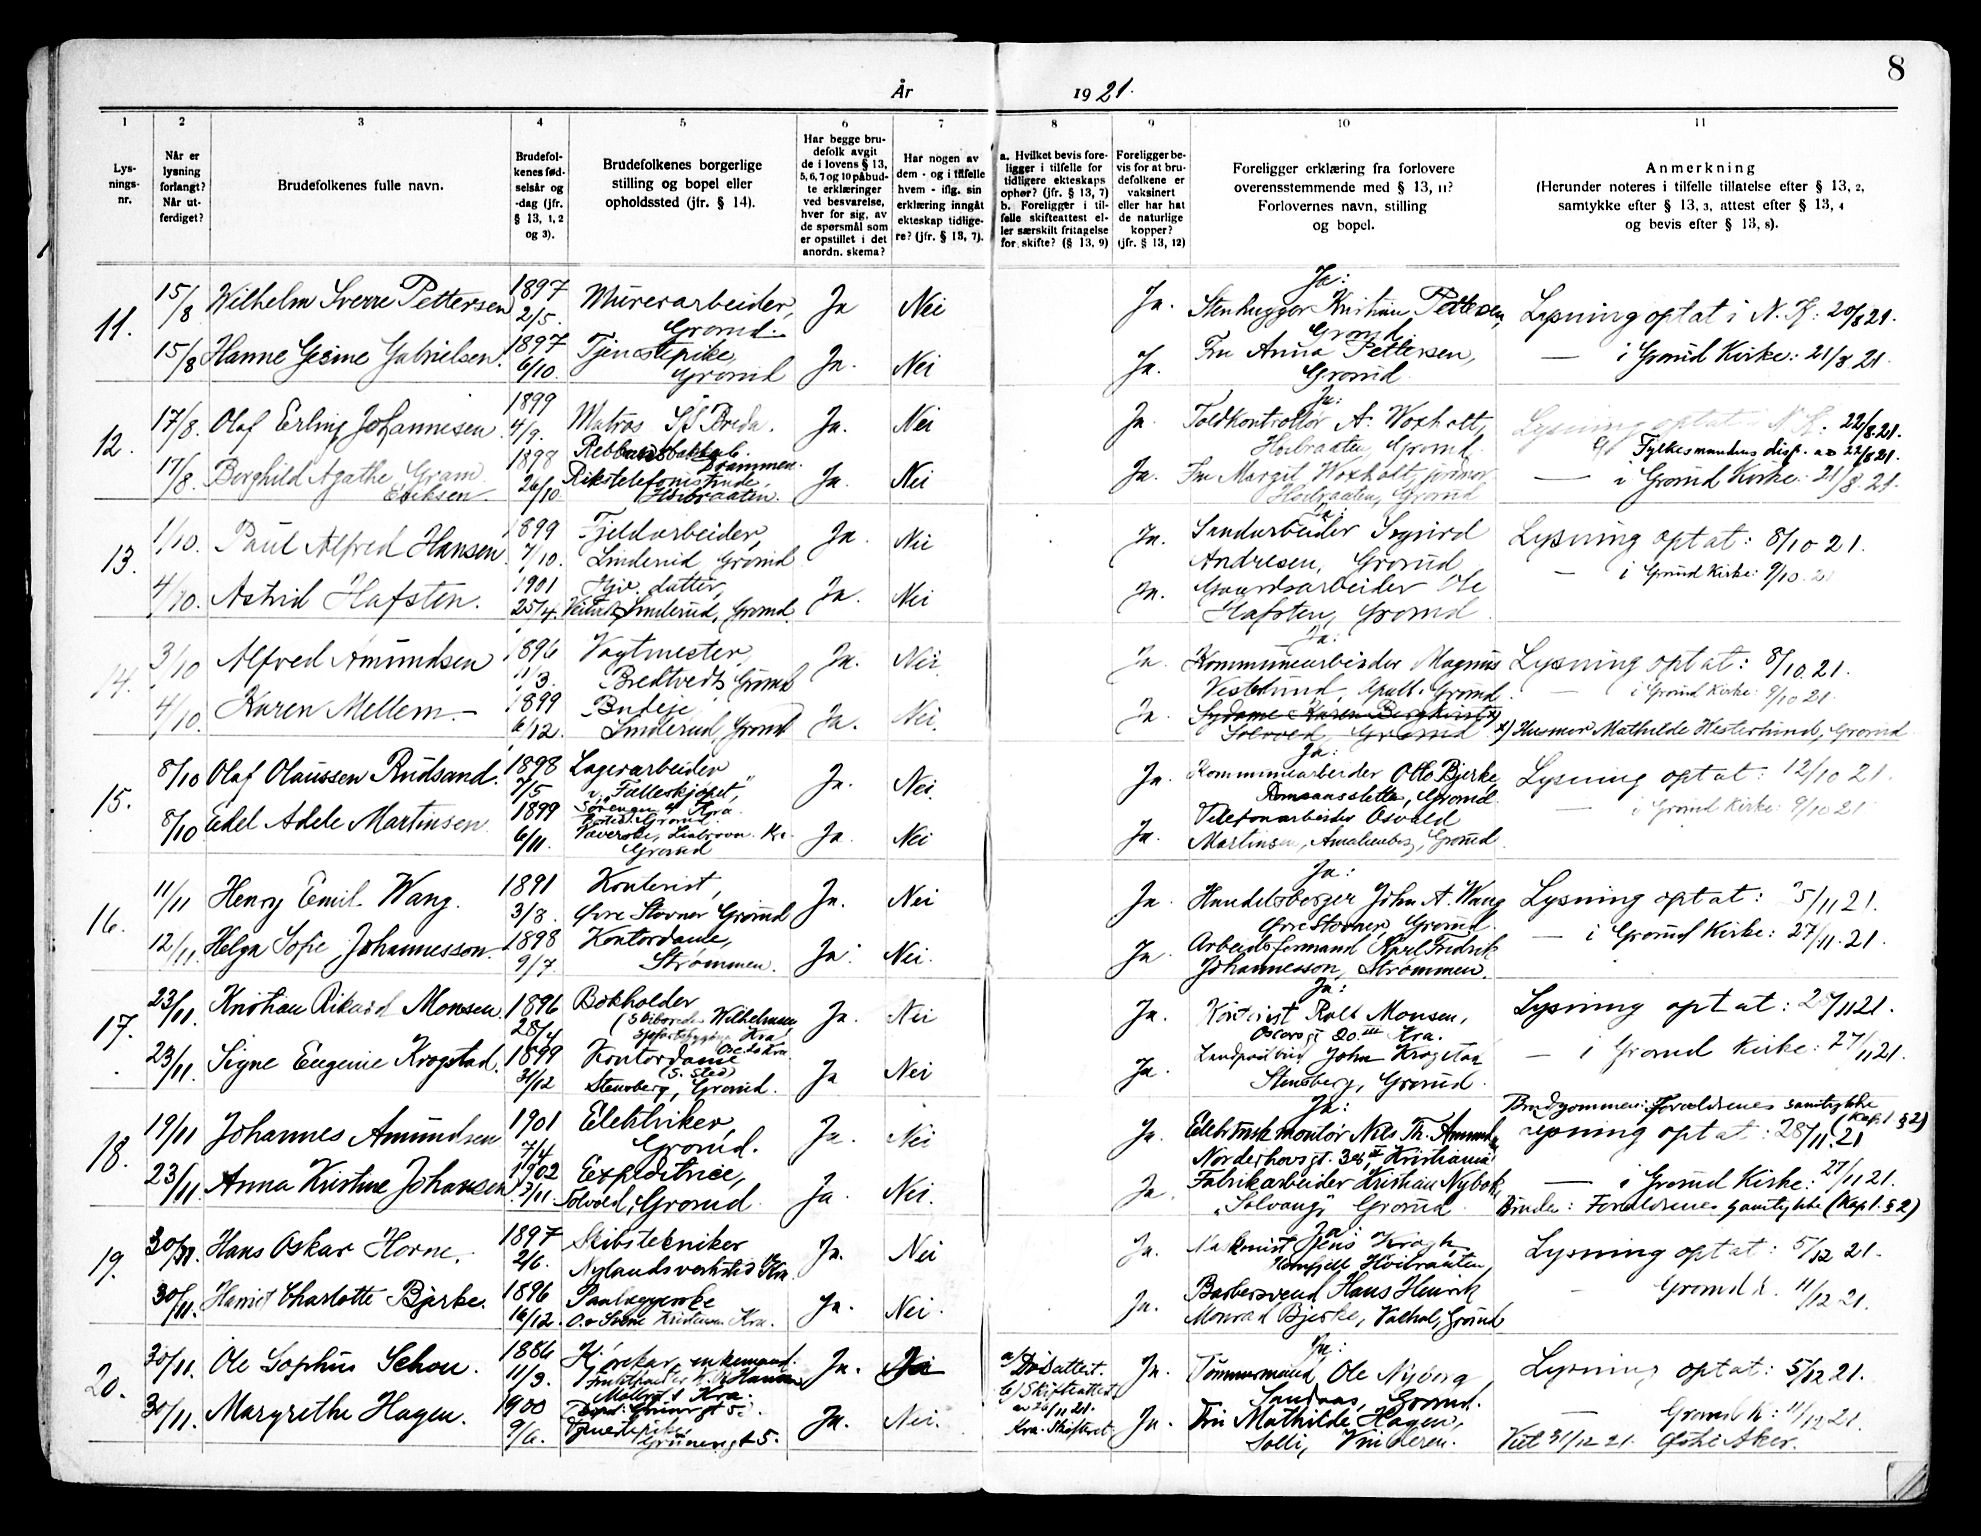 8
År 1921.
1 2 3 4 5 6 7 8 9 10 11
Lys-
nings-
nr.
Når er
lysning
forlangt?
Når ut-
ferdiget?
Brudefolkenes fulle navn.
Brudefol-
kenes fød-
selsår og
-dag (jfr.
§ 13, 1, 2
og 3).
Brudefolkenes borgerlige
stilling og bopel eller
opholdssted (jfr. § 14).
Har begge bru-
defolk avgit
de i lovens § 13,
5, 6, 7 og 10 påbud-
te erklæringer
ved besvarelse,
hver for sig, av
de spørsmål som
er opstillet i det
anordn. skema?
Har nogen av
dem - og i tilfelle
hvem - iflg. sin
erklæring inngåt
ekteskap tidlige-
re? (jfr. § 13, 7).
a. Hvilket bevis fore-
ligger i tilfelle for
tidligere ekteskaps
ophør? (jfr. § 13, 7)
b. Foreligger i til-
felle skifteattest el-
ler særskilt fritagelse
for skifte? (§ 13, 9)
Foreligger be-
vis for at bru-
defolkene er
vaksinert
eller har hat
de naturlige
kopper?
(jfr. § 13, 12)
Foreligger erklæring fra forlovere
overensstemmende med § 13, 11?
Forlovernes navn, stilling
og bopel.
Anmerkning
(Herunder noteres i tilfelle tillatelse efter § 13, 2,
samtykke efter § 13, 3, attest efter § 13, 4
og bevis efter § 13, 8).
11. 15/8 Wilhelm Sverre Pettersen 1897 2/5. Murerarbeider, Grorud. Ja Nei Ja. Ja: Stenhugger Kristian Pettersen, Grorud. Lysning optat i N. K: 20/8 21.
15/8 Hanne Gesine Gabrielsen. 1897 6/10. Tjenestepike, Grorud Ja. Nei Ja. Fru Anna Pettersen, Grorud. — i Grorud Kirke: 21/8 21.
12. 17/8. Olaf Erling Johannesen. 1899 4/9. Matros S/S Breda. Drammen. Ja. Nei Ja. Ja: Toldkontrollør A. Woxholt, Høibraaten, Grorud Lysning optat i N. K: 22/8 21.
Fylkesmandens disp. av 22/8 21.
17/8. Borghild Agathe Gram Eriksen 1898 26/10 Rikstelefonistinde, Høibraaten. Ja. Nei Ja. Fru Margit Woxholt, Høibraaten, Grorud — i Grorud Kirke: 21/8. 21.
13. 1/10. Paul Alfred Hansen 1899 7/10. Fjeldarbeider, Linderud Grorud Ja. Nei Ja. Ja: Sigurd Andresen, Grorud Lysning optat: 8/10 21.
4/10. Astrid Hafsten. 1901 25/4. Hjv. datter, Linderud, Grorud. Ja. Nei Ja. Gaardsarbeider Ole Hafsten, Grorud — i Grorud Kirke: 9/10. 21
14. 3/10 Alfred Amundsen 1896 11/3. Vagtmester, Bredtvedt, Grorud Ja. Nei. Ja. Ja: Kommunearbeider Magnus Vesterlund, Grorud. Lysning optat: 8/10. 21.
4/10. Karen Mellem. 1899 6/12. Budeie, Linderud, Grorud Ja. Nei. Ja. Sydame Karen Solvold, Grorud — i Grorud Kirke: 9/10 21.
x) Husmor Mathilde Westerlund, Grorud
15. 8/10 Olaf Olaussen Rudsand. 1898 7/5 Lagerarbeider v. "Felleskjøpet," Sørengen Kra. Grorud. Ja. Nei. Ja. Ja: Kommunearbeider Otto Bjerke, Grorud. Lysning optat: 12/10 21.
8/10 Edel Adele Martinsen 1899 6/11. Væverske, Grorud Ja. Nei Ja. Telefonarbeider Osvald Martinsen, Amalienborg, Grorud. — i Grorud Kirke: 9/10 21
16. 11/11 Henry Emil Wang. 1891 3/8. Kontorist, Øvre Stovner Grorud Ja. Nei Ja. Ja: Handelsborger John A. Wang Øvre Stovner, Grorud. Lysning optat: 5/11 21.
12/11. Helga Sofie Johannesson. 1898 9/7 Kontordame, Strømmen. Ja. Nei. Ja. Arbeidsformand Karl Fredrik Johannesson, Strømmen. — i Grorud Kirke: 27/11. 21.
17. 23/11. Kristian Rikard Monsen 1896 28/4 Bokholder Wilhelmsen Kra. Ja. Nei Ja. Ja: Kontorist Rolf Monsen, Oscarsgt 20 III Kra. Lysning optat: 11 21.
23/11. Signe Eugenie Krogstad. 1899 31/12 Kontordame (s. sted) Stensberg, Grorud. Ja Nei Ja. Landpostbud John Krogstad Stensberg, Grorud. — i Grorud Kirke: 27/11 21.
18. 19/11 Johannes Amundsen 1901 7/4 Elektriker, Grorud. Ja. Nei Ja. Ja: Elektrisk montør Nils Th. Amundsen Norderhovsgt. Kristiania Brudgommen: Forældrenes samtykke (Kap 1. § 2)
Lysning optat: 28/11. 21
23/11. Anna Kristine Johansen 1902 /11. Expeditrice, Solvold, Grorud Ja. Nei. Ja. Fabrikarbeider Kristian Nybok, "Solvang", Grorud — i Grorud Kirke: 27/11 21.
Bruden: Forældrenes samtykke (Kap 1. § 2)
19. 30/11. Hans Oskar Horne. 1897 2/6. Skibstekniker Nylands verksted Kra. Ja. Nei Ja. Ja: Maskinist Jens Krogh, Høibraaten, Lysning optat: 5/12 21.
30/11. Harriet Charlotte Bjerke. 1896 16/12. Kra. Ja. Nei. Ja. Barbersvend Hans Henrik Monrad Bjerke, Valhal, Grorud Grorud k. 11/12 21.
20. 30/11. Ole Sophus Schou. 1886 11/3. Kjørekar, enkemand. Kra. Ja. Ja a/ Dødsattest. b/ Skifteattest av 26/11 21. Kra. Skifteret. Ja. Ja: Tømmermand Ole Nyborg Sandaas, Grorud. Lysning optat: 5/12 21.
30/11. Margrethe Hagen. 1900 9/6. Tjenestepike Grünersgt 5. Ja. Nei. Ja. Fru Mathilde Hagen, Solli, Vinderen. — Grorud k: 11/12 21.
Viet 31/12 21. Østre Aker.